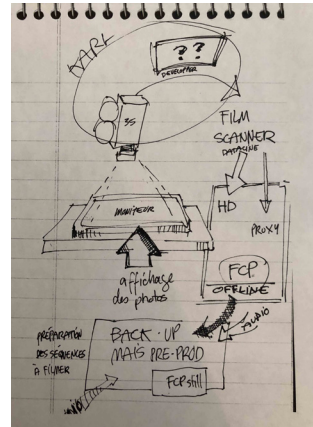 DARK
??
DEVELOPPER
35
FILM
SCANNER
DATACINE
MONITEUR
HD
PROXY
affichage
des photos
FCP
OFFLINE
AUDIO
PRÉPARATION
DES SEQUENCES
À FILMER
BACK-UP
MAIS PRE-PROD
FCP still